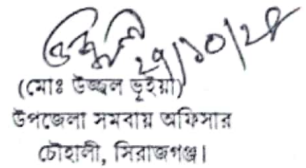 ২৯/১০/২৪
(মোঃ উজ্জ্বল ভূইয়া)
উপজেলা সমবায় অফিসার
চৌহালী, সিরাজগঞ্জ।